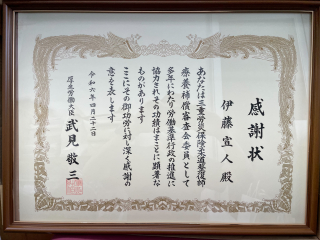 感謝状
伊藤宣人殿
あなたは三重労災保険柔道整復師
療養補償審査会委員として
多年にわたり労働基準行政の推進に
協力されその功績はまことに顕著な
ものがあります
ここにその御功労に対し深く感謝の
意を表します
令和六年四月二十二日
厚生労働大臣 武見敬三